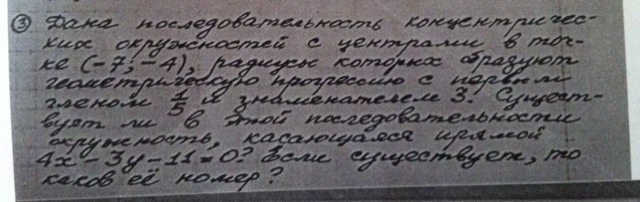 ③ Дана последовательность концентричес-
ких окружностей с центрами в точ-
ке (-7;-4), радиусы которых образуют
геометрическую прогрессию с первым
членом и знаменателем 3. Сущест-
вует ли в этой последовательности
окружность, касающаяся прямой
4x-3y-11=0? Если существует, то
каков её номер?